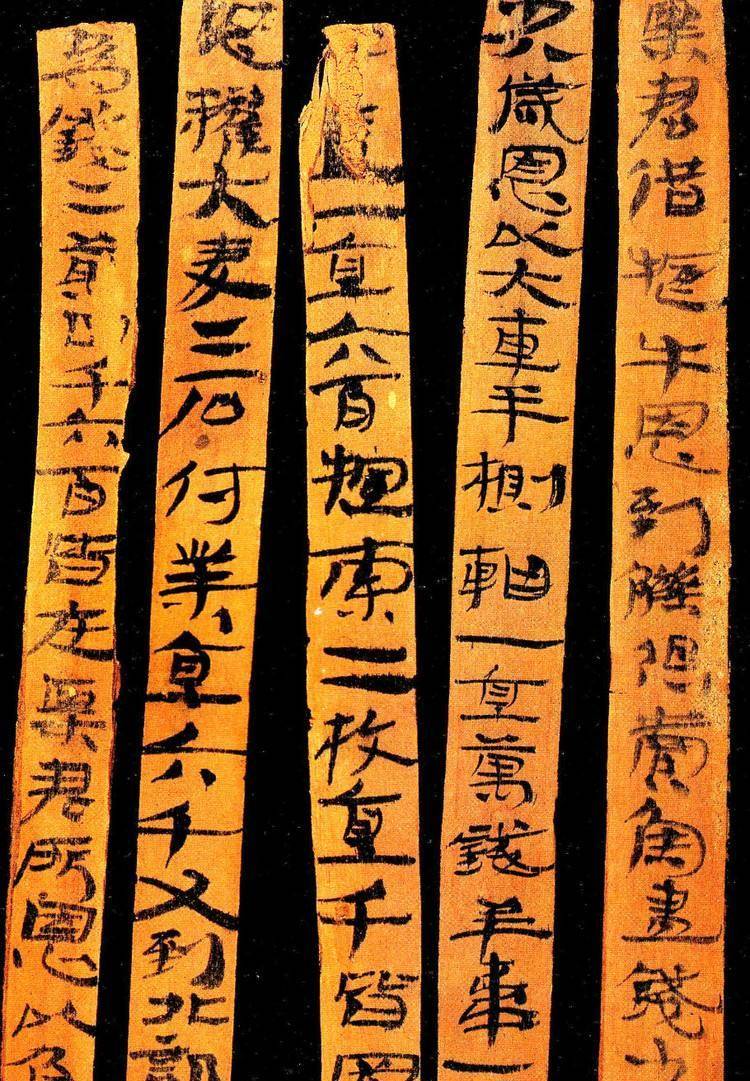 粟君借㹀牛恩到觻得賣魚盡錢少
少八歲恩以大車半㯡軸一直萬錢羊韋一
盧一直六百㯡索二枚直千皆
恩糴大麥二石付業直六千又到北部
為錢二萬四千六百皆在粟君所恩以負